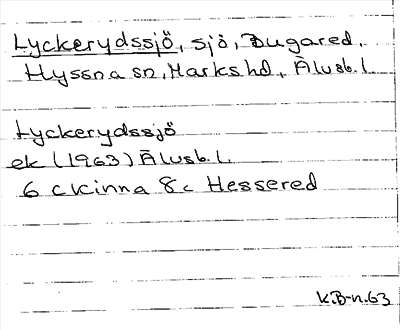 Lyckerydssjö, sjö, Bugared,
Hyssna sn, Marks hd, Älvsb. l.
Lyckerydssjö
ek (1963) Älvsb. l.
6 c Kinna 8c Hessered
K.B-n.63